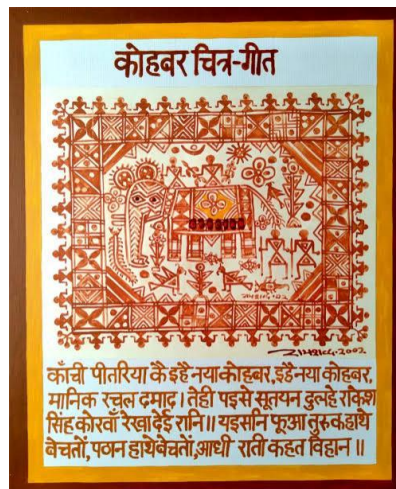 कोहबर चित्र-गीत
2002
काँची पीतरिया कै इहै नया कोहबर, इहै नया कोहबर,
मानिक रचल दमाद। तेही पइसे सूतयन दुलहे राकेश
सिंह कोरवाँ रेखा देई रानि॥ यइसनि फूआ तुरुक हाथे
बेचतों, पठान हाथे बेचतों, आधी राती कहत विहान॥